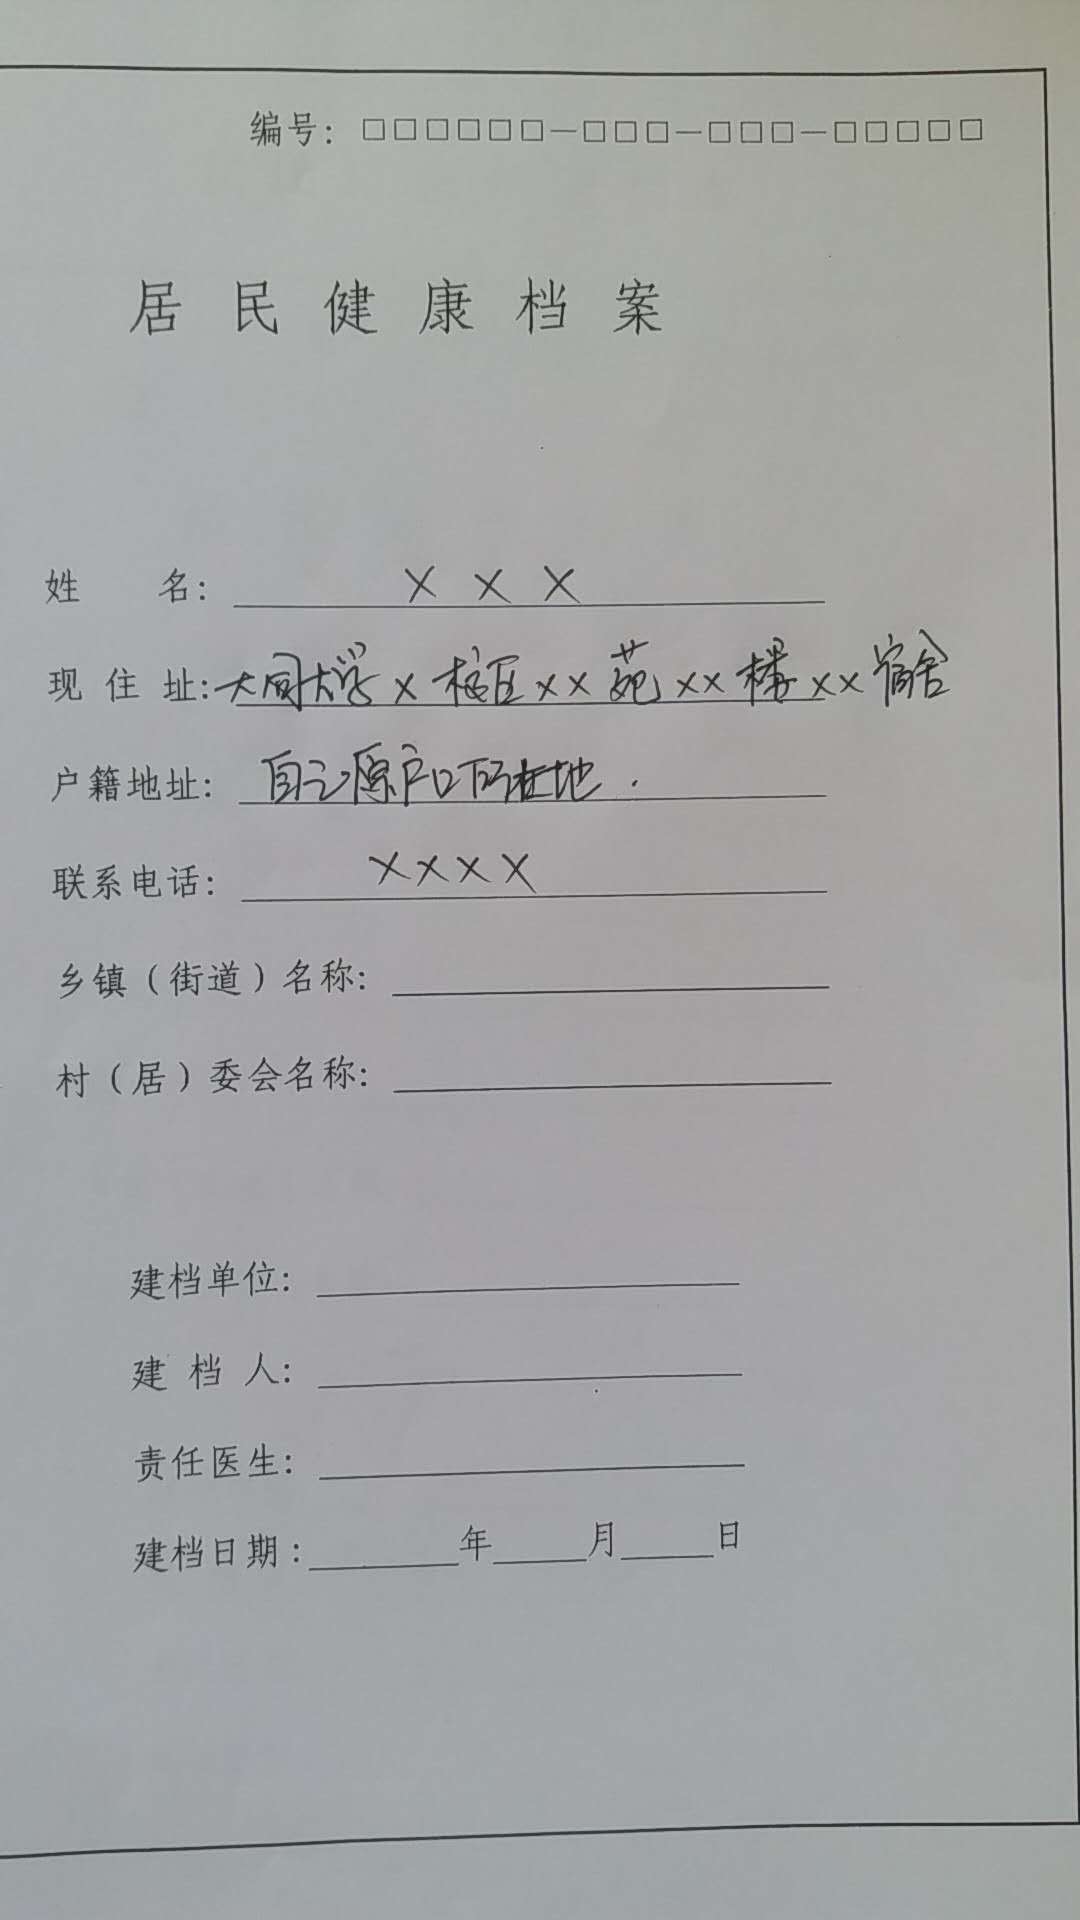 编号：□□□□□□－□□□－□□□－□□□□□
居民健康档案
姓 名：X X X
现住址：大同大学X校区XX苑XX楼XX宿舍
户籍地址：自己原户口所在地.
联系电话：XXXX
乡镇（街道）名称：
村（居）委会名称：
建档单位：
建档人：
责任医生：
建档日期：年 月 日